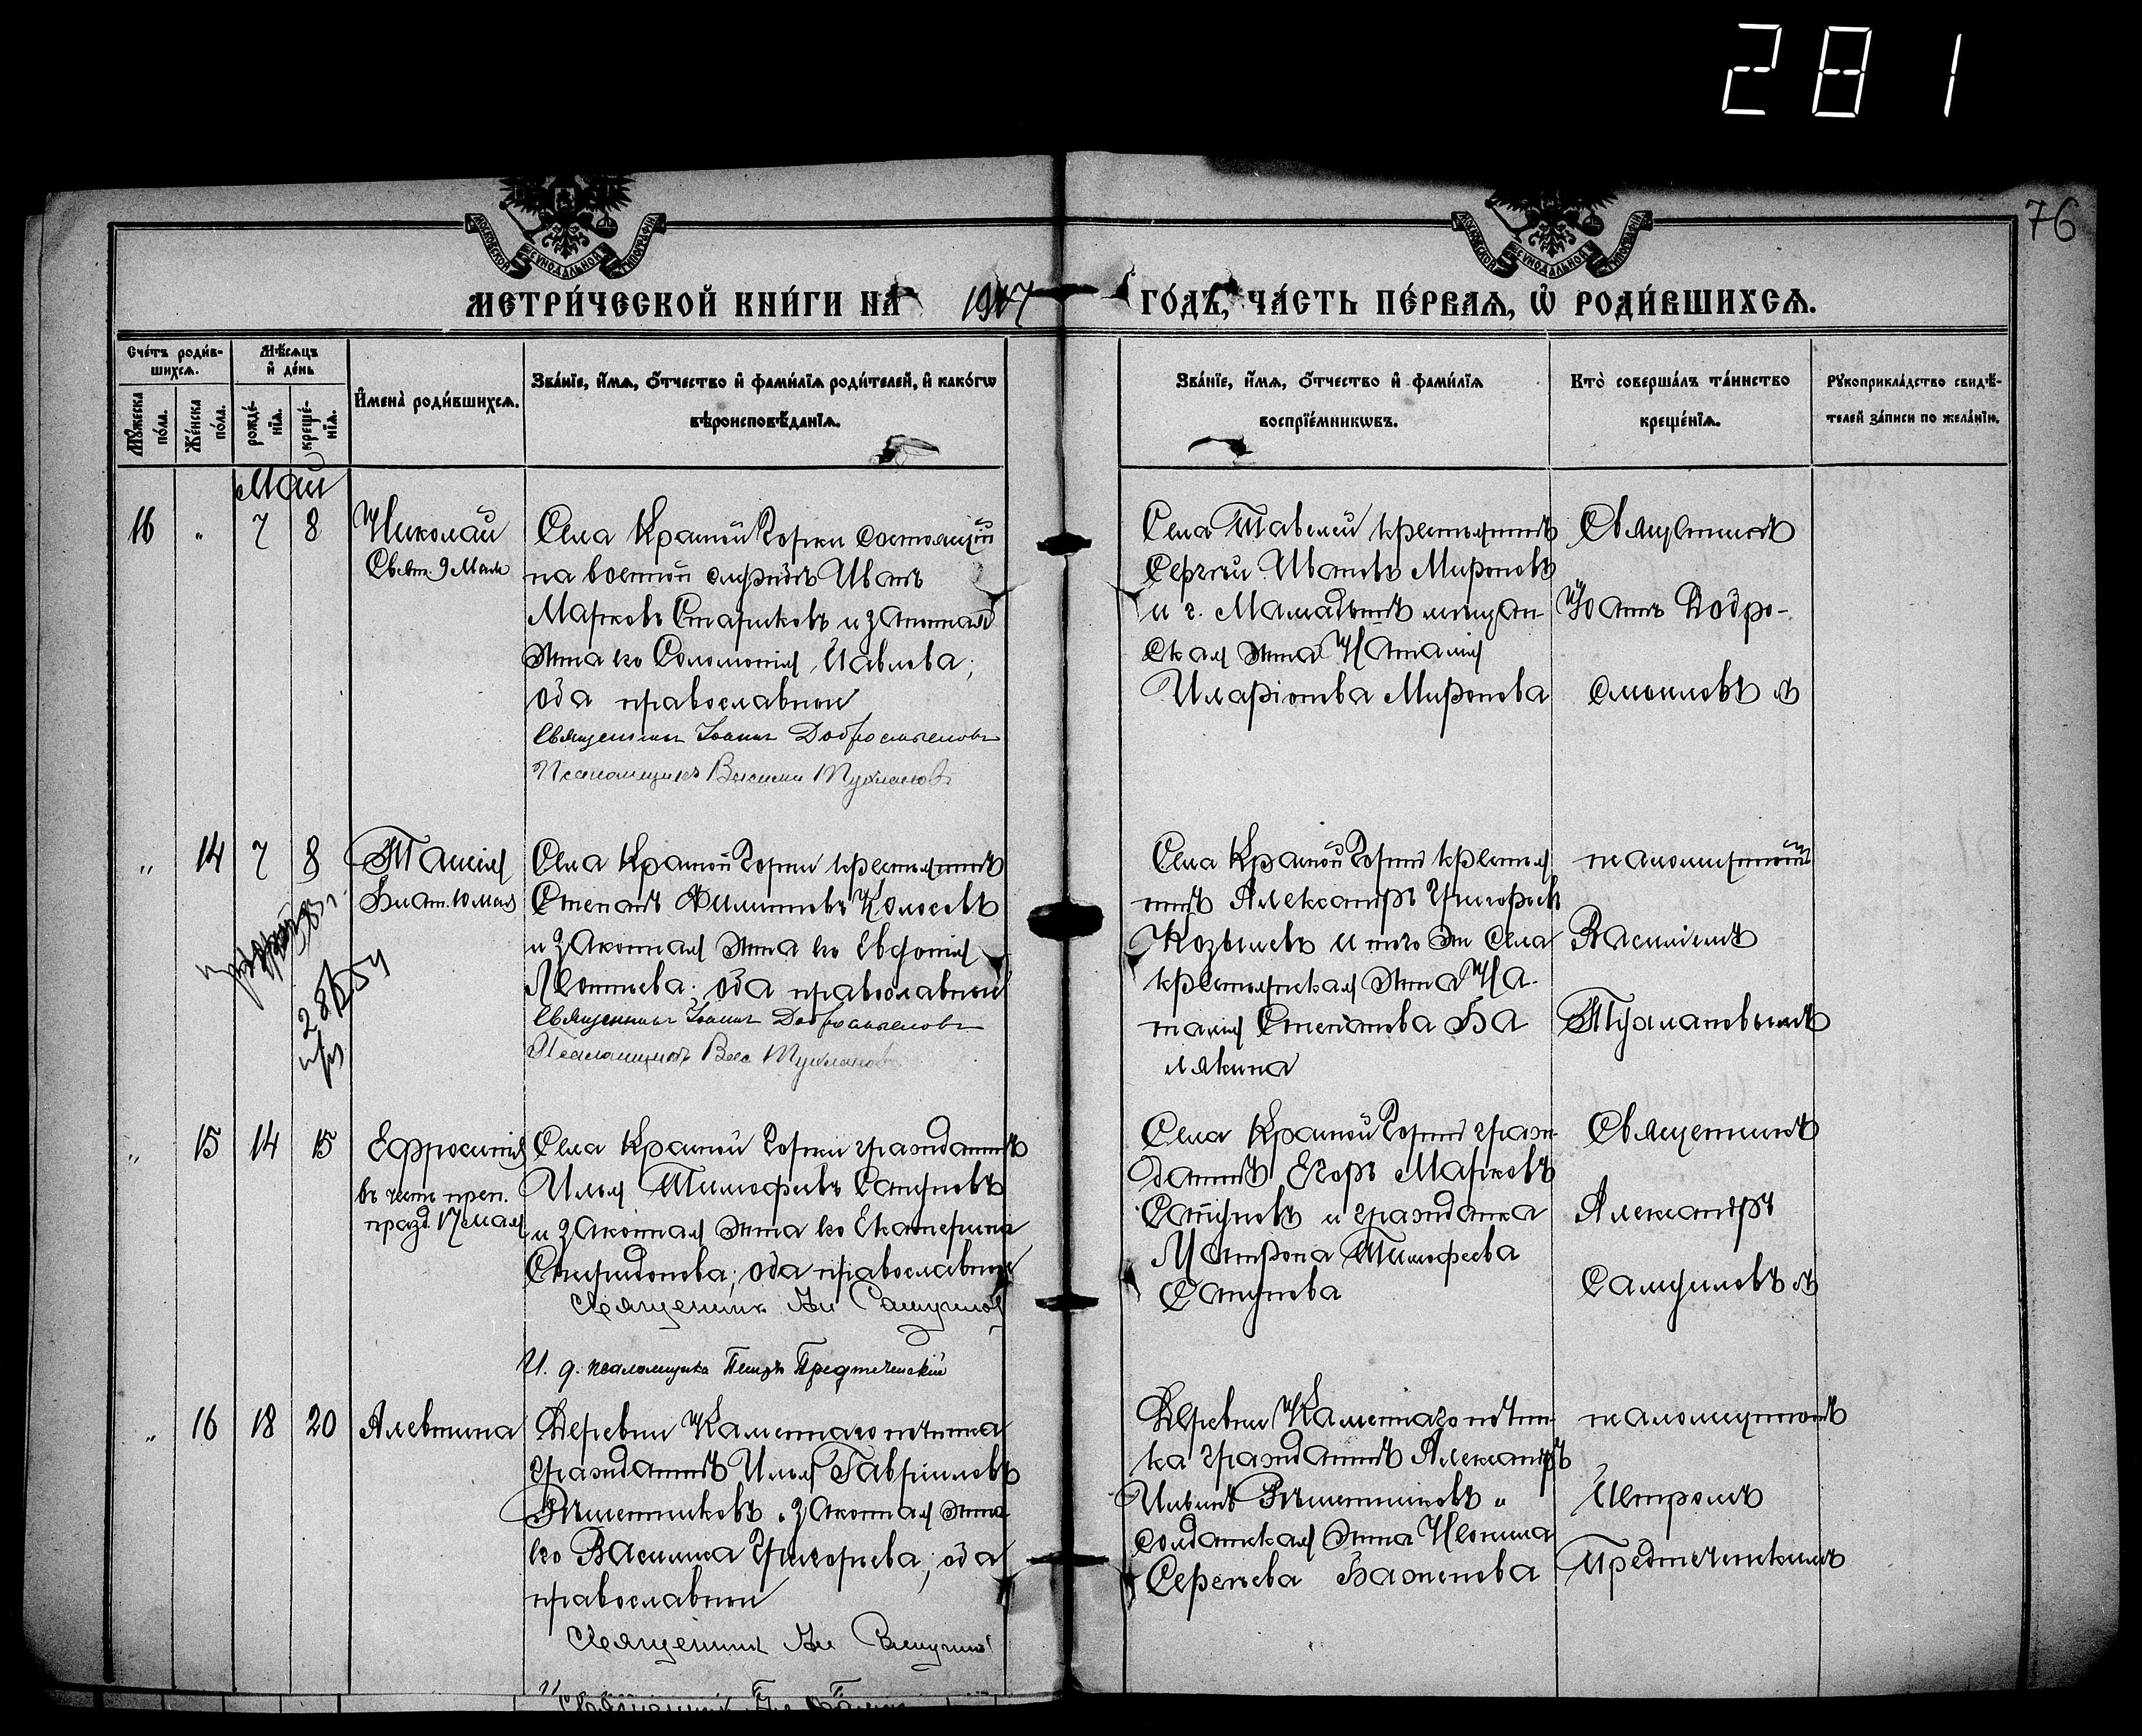 281
76
МОСКОВСКОЙ СѴНОДАЛЬНОЙ ТИПОГРАФІИ
МОСКОВСКОЙ СѴНОДАЛЬНОЙ ТИПОГРАФІИ
МЕТРИ́ЧЕСКОЙ КНИ́ГИ НА 1917 ГО́ДЪ, ЧА́СТЬ ПЕ́РВАѦ, Ѡ҆ РОДИ́ВШИХСѦ.
Сче́тъ роди́в-
шихсѧ.
Мѣ́сѧцъ
и҆ де́нь
Мꙋ́жеска
по́ла.
Же́нска
по́ла.
рожде́-
нїѧ.
креще́-
нїѧ.
И҆мена̀ роди́вшихсѧ.
Зва́нїе, и҆́мѧ, ѻ҆́тчество и҆ фами́лїѧ роди́телей, и҆ како́гѡ
вѣроисповѣ́данїѧ.
Зва́нїе, и҆́мѧ, ѻ҆́тчество и҆ фами́лїѧ
воспрїе́мникѡвъ.
Кто̀ соверша́лъ та́инство
креще́нїѧ.
Рꙋкоприкла́дство свидѣ́-
телей за́писи по жела́нїю.
Май
16 " 7 8
Николай
9 Мая
Села Красной Горки состоящій
на военной службѣ Иванъ
Марковъ Стариковъ и законная
жена его Соломонія Павлова;
оба православные
Священникъ Іоаннъ Добросмысловъ
Псаломщикъ Василій Тухланов
Села Тавелей крестьянинъ
Сергѣй Ивановъ Мироновъ
и г. Мамадыша мѣщан-
ская жена Наталія
Иларіонова Миронова
Священникъ
Іоаннъ Добро-
смысловъ съ
" 14 7 8
Таисія
10 мая
Села Красной Горки крестьянинъ
Степанъ Филипповъ Колосовъ
и законная жена его Евфонія
Леонтьева; оба православные
Священникъ Іоаннъ Добросмысловъ
Псаломщикъ Вас Тухланов
Села Красной Горки крестья
нинъ Александръ Григорьевъ
Козыревъ и того же села
крестьянская жена На-
талія Степанова Ба
лякина
псаломщикомъ
Василіемъ
Тухлановымъ
" 15 14 15
Ефросинія
въ честь преп.
празд. 17 мая
Села Красной Горки гражданинъ
Илья Тимофеевъ Сапуновъ
и законная жена его Екатерина
Спиридонова; оба православные
Священникъ Ал Самуилов
И. д. псаломщика Петръ Предтеченскій
Села Красной Горки граж-
данинъ Егоръ Марковъ
Сапуновъ и гражданка
Матрона Тимофеева
Сапунова
Священникъ
Александръ
Самуиловъ съ
" 16 18 20
Алевтина
Деревни Каменнаго починка
гражданинъ Илья Гавриловъ
Рѣшетниковъ и законная жена
его Василиса Григорьева; оба
православные
Священник Ал Самуилов
Деревни Каменнаго почин-
ка гражданинъ Александръ
Ильинъ Рѣшетниковъ и
солдатская жена Неонила
Сергѣева Баженова
псаломщикомъ
Петромъ
Предтеченскимъ